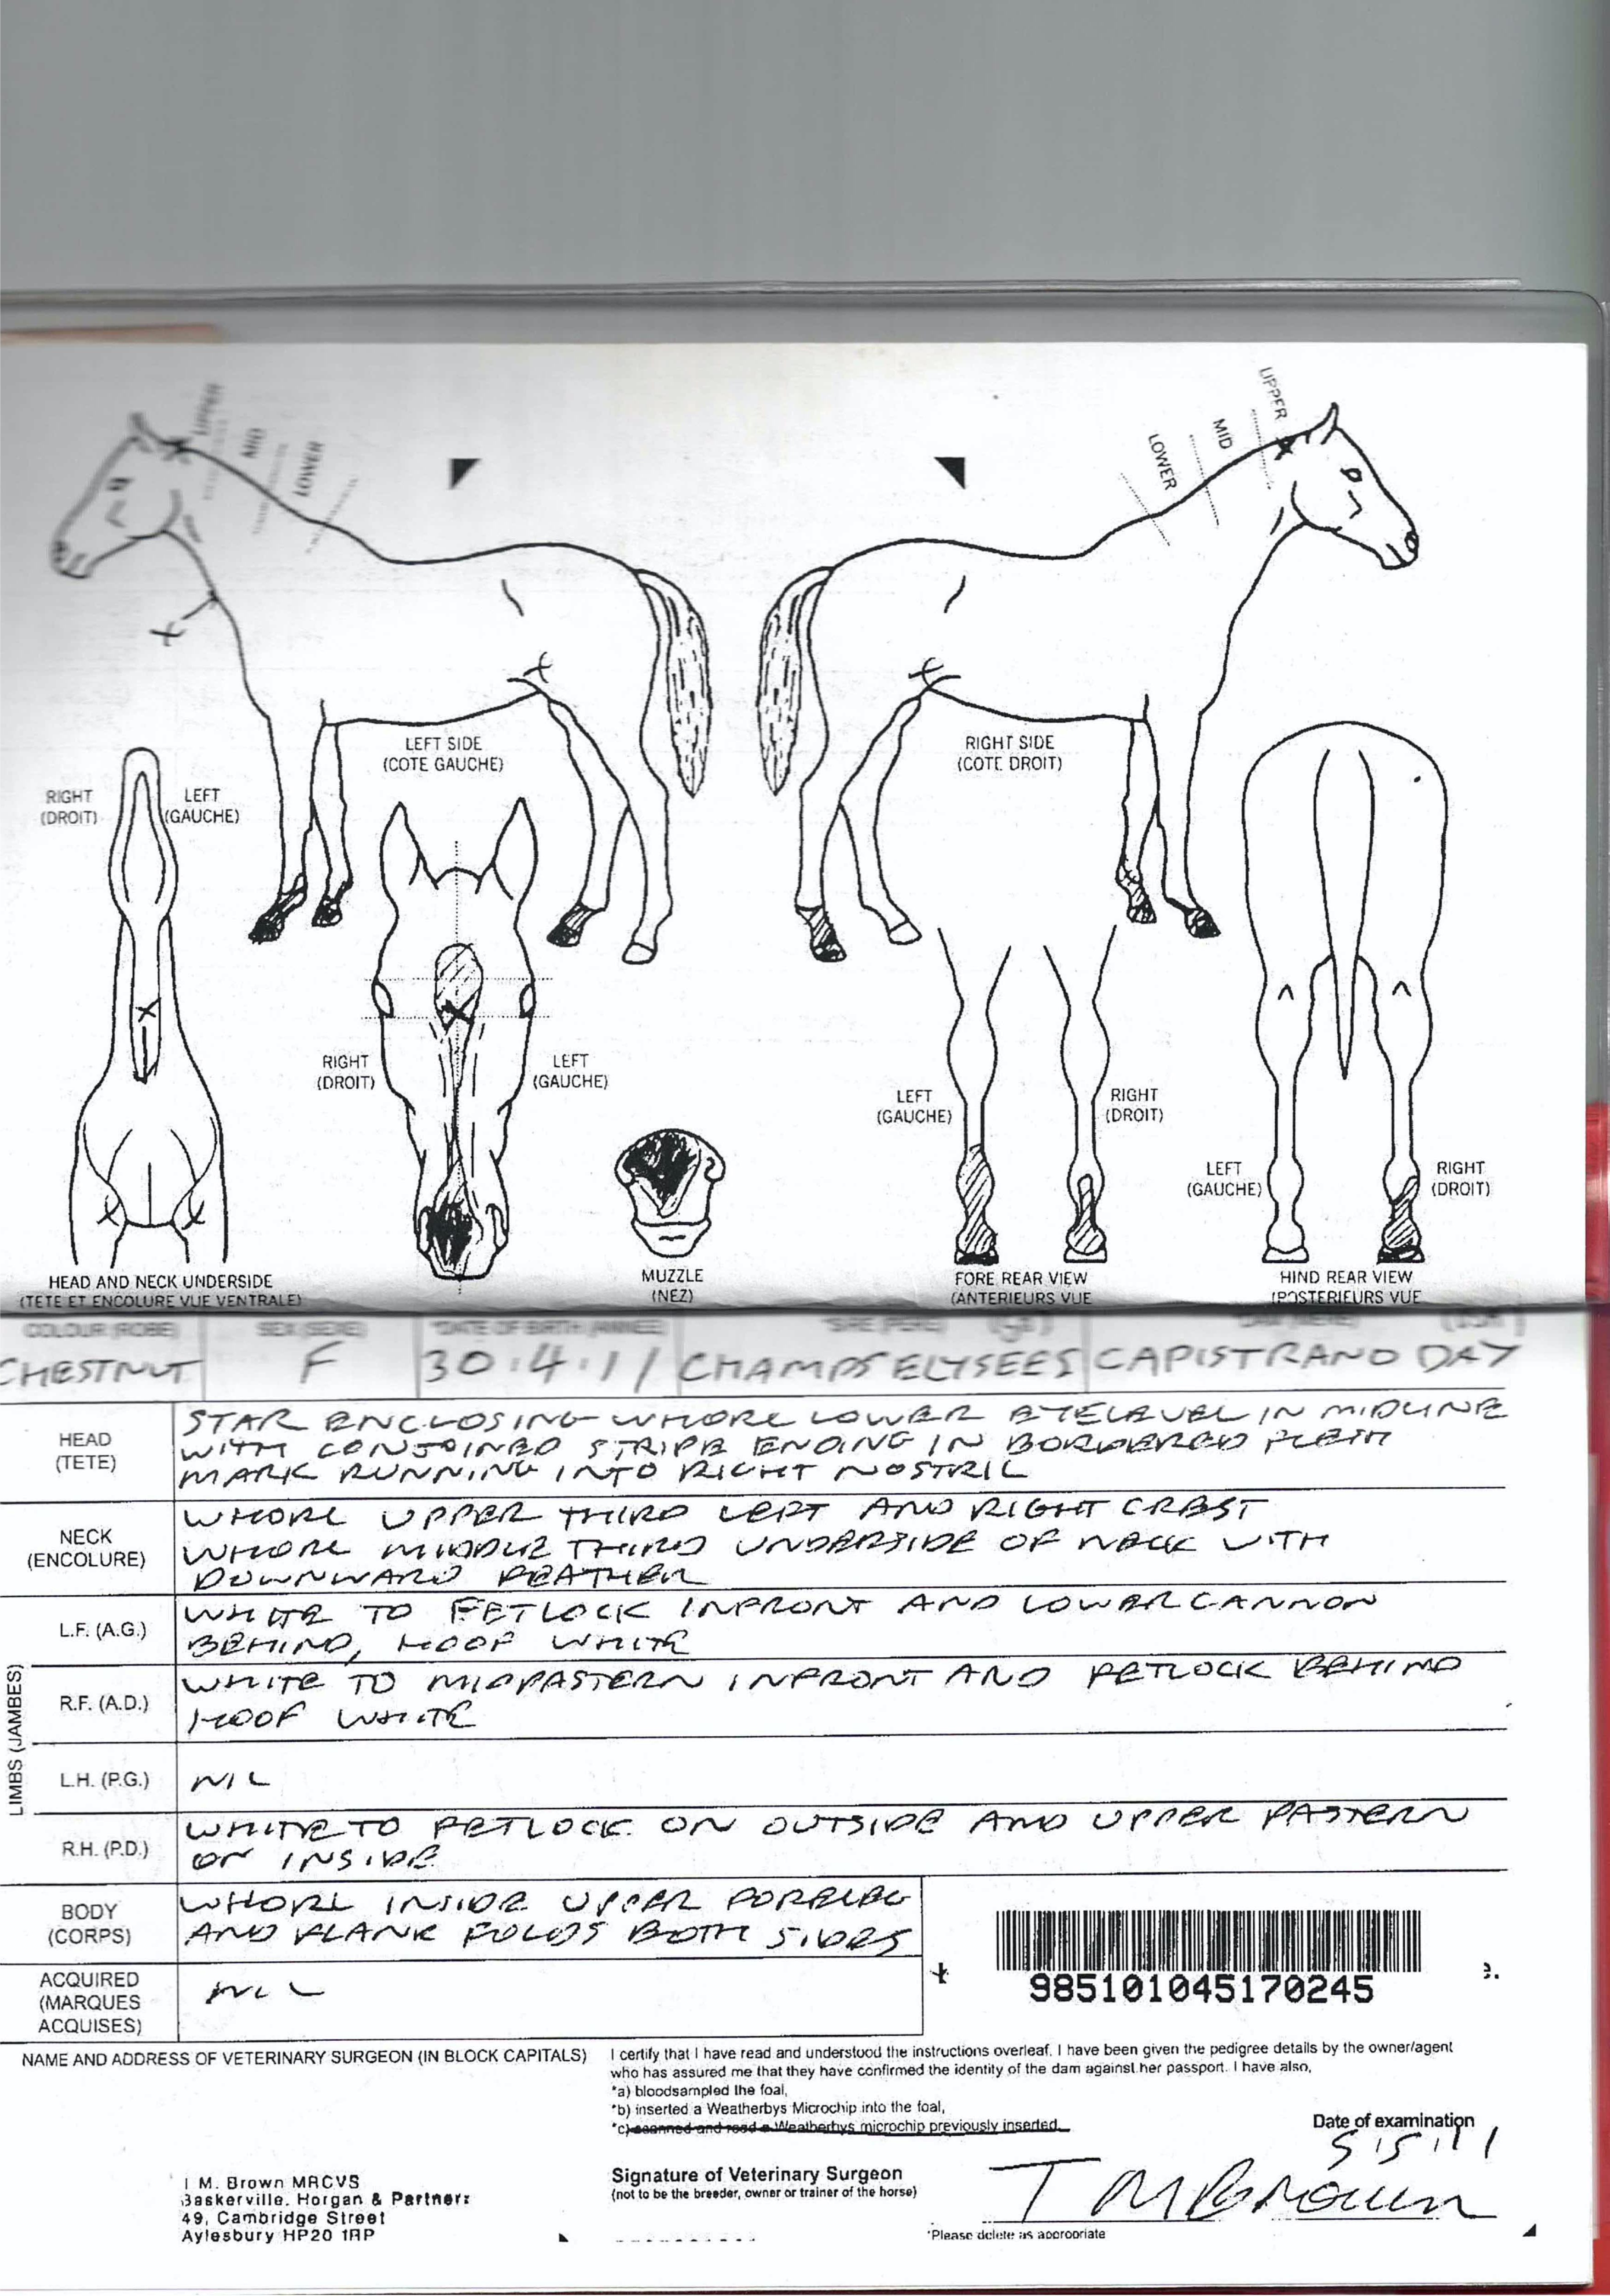 UPPER
MID
LOWER
UPPER
MID
LOWER
LEFT SIDE
(COTE GAUCHE)
RIGHT SIDE
(COTE DROIT)
RIGHT
(DROIT)
LEFT
(GAUCHE)
RIGHT
(DROIT)
LEFT
(GAUCHE)
LEFT
(GAUCHE)
RIGHT
(DROIT)
LEFT
(GAUCHE)
RIGHT
(DROIT)
HEAD AND NECK UNDERSIDE
(TETE ET ENCOLURE VUE VENTRALE)
MUZZLE
(NEZ)
FORE REAR VIEW
(ANTERIEURS VUE
HIND REAR VIEW
(POSTERIEURS VUE
COLOUR (ROBE) SEX (SEXE) *DATE OF BIRTH (ANNEE) *SIRE (PERE) DAM (MERE)
CHESTNUT F 30.4.11 CHAMPS ELYSEES CAPISTRANO DAY
HEAD
(TETE)
STAR ENCLOSING WHORL LOWER EYELEVEL IN MIDLINE
WITH CONJOINED STRIPE ENDING IN BORDERED FLESH
MARK RUNNING INTO RIGHT NOSTRIL
NECK
(ENCOLURE)
WHORL UPPER THIRD LEFT AND RIGHT CREST
WHORL MIDDLE THIRD UNDERSIDE OF NECK WITH
DOWNWARD FEATHER
LIMBS (JAMBES)
L.F. (A.G.)
WHITE TO FETLOCK INFRONT AND LOWER CANNON
BEHIND, HOOF WHITE
R.F. (A.D.)
WHITE TO MIDPASTERN INFRONT AND FETLOCK BEHIND
HOOF WHITE
L.H. (P.G.)
NIL
R.H. (P.D.)
WHITE TO FETLOCK ON OUTSIDE AND UPPER PASTERN
ON INSIDE
BODY
(CORPS)
WHORL INSIDE UPPER FORELEG
AND FLANK FOLDS BOTH SIDES
ACQUIRED
(MARQUES
ACQUISES)
NIL
985101045170245
e.
NAME AND ADDRESS OF VETERINARY SURGEON (IN BLOCK CAPITALS)
I certify that I have read and understood the instructions overleaf. I have been given the pedigree details by the owner/agent
who has assured me that they have confirmed the identity of the dam against her passport. I have also,
*a) bloodsampled the foal,
*b) inserted a Weatherbys Microchip into the foal,
*c) scanned and read a Weatherbys microchip previously inserted.
Date of examination
5.5.11
I M. Brown MRCVS
Baskerville, Horgan & Partners
49, Cambridge Street
Aylesbury HP20 1RP
Signature of Veterinary Surgeon
(not to be the breeder, owner or trainer of the horse)
T M Brown
*Please delete as appropriate